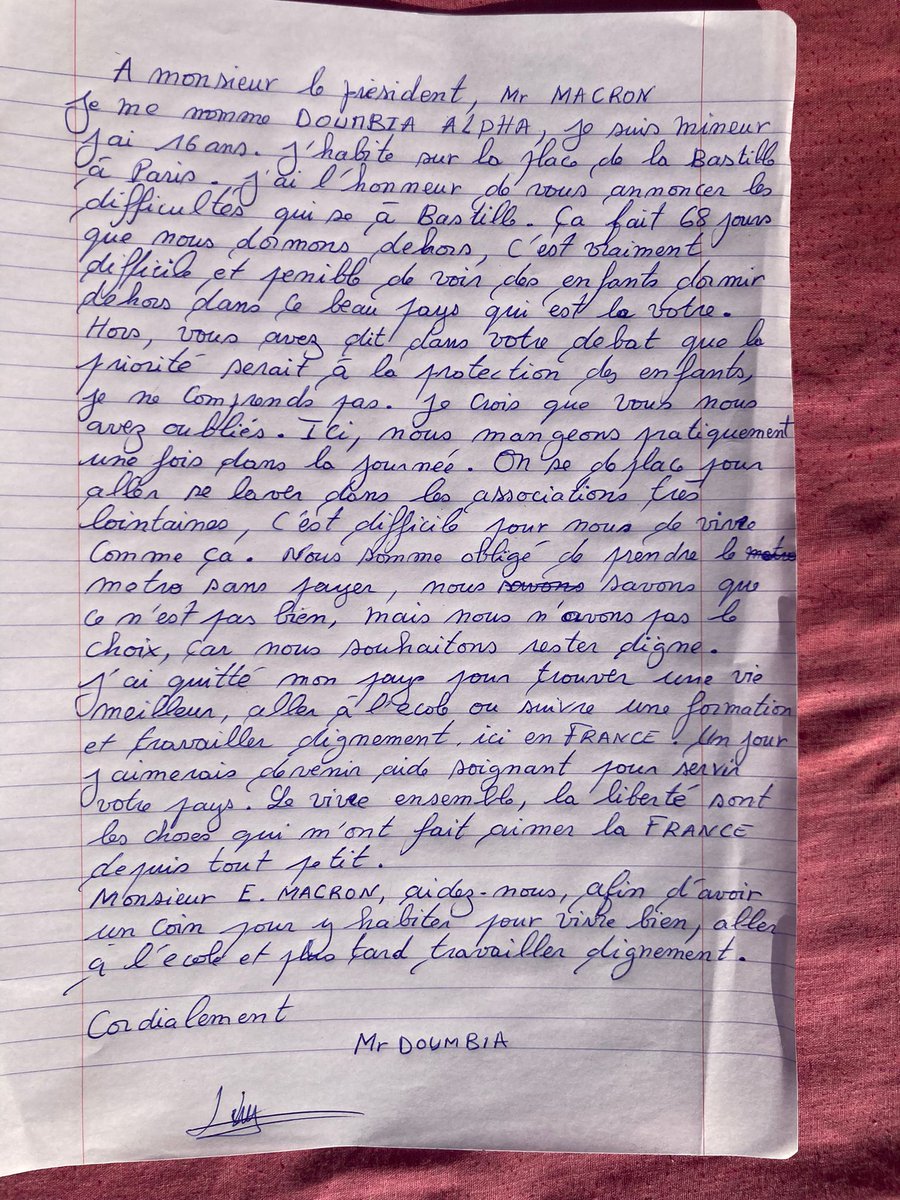 A monsieur le président, Mr MACRON
Je me nomme DOUMBIA ALPHA, je suis mineur
j'ai 16 ans. J'habite sur la place de la Bastille
à Paris. J'ai l'honneur de vous annoncer les
difficultés qui se à Bastille. Ça fait 68 jours
que nous dormons dehors, c'est vraiment
difficile et penible de voir des enfants dormir
dehors dans ce beau pays qui est la votre.
Hors, vous avez dit dans votre debat que la
priorité serait à la protection des enfants,
je ne comprends pas. Je crois que vous nous
avez oubliés. Ici, nous mangeons pratiquement
une fois dans la journée. On se deplace pour
aller se laver dans les associations très
lointaines, c'est difficile pour nous de vivre
comme ça. Nous somme obligé de prendre le metro
metro sans payer, nous savons savons que
ce n'est pas bien, mais nous n'avons pas le
choix, car nous souhaitons rester digne.
J'ai quitté mon pays pour trouver une vie
meilleur, aller à l'école ou suivre une formation
et travailler dignement ici en FRANCE. Un jour
j'aimerais devenir aide soignant pour servir
votre pays. Le vivre ensemble, la liberté sont
les choses qui m'ont fait aimer la FRANCE
depuis tout petit.
Monsieur E. MACRON, aidez-nous, afin d'avoir
un coin pour y habiter pour vivre bien, aller
à l'école et plus tard travailler dignement.
Cordialement
Mr DOUMBIA